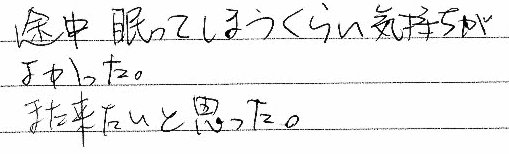 途中 眠ってしまうくらい気持ちが
よかった。
また来たいと思った。